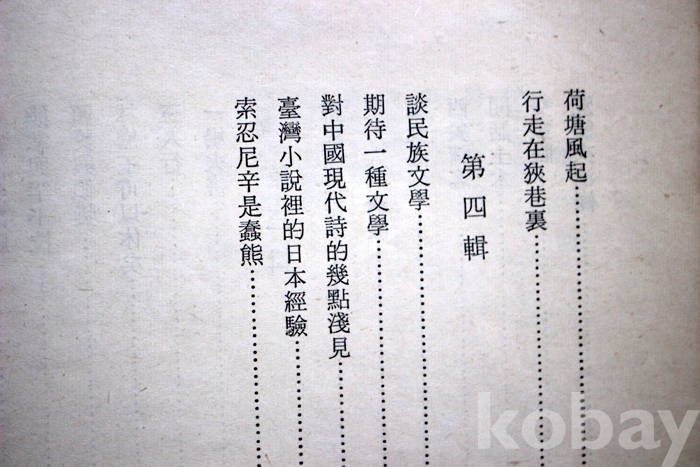 荷塘風起…………
行走在狹巷裏…………
第四輯
談民族文學…………
期待一種文學…………
對中國現代詩的幾點淺見…………
臺灣小說裡的日本經驗…………
索忍尼辛是蠢熊…………
kobay